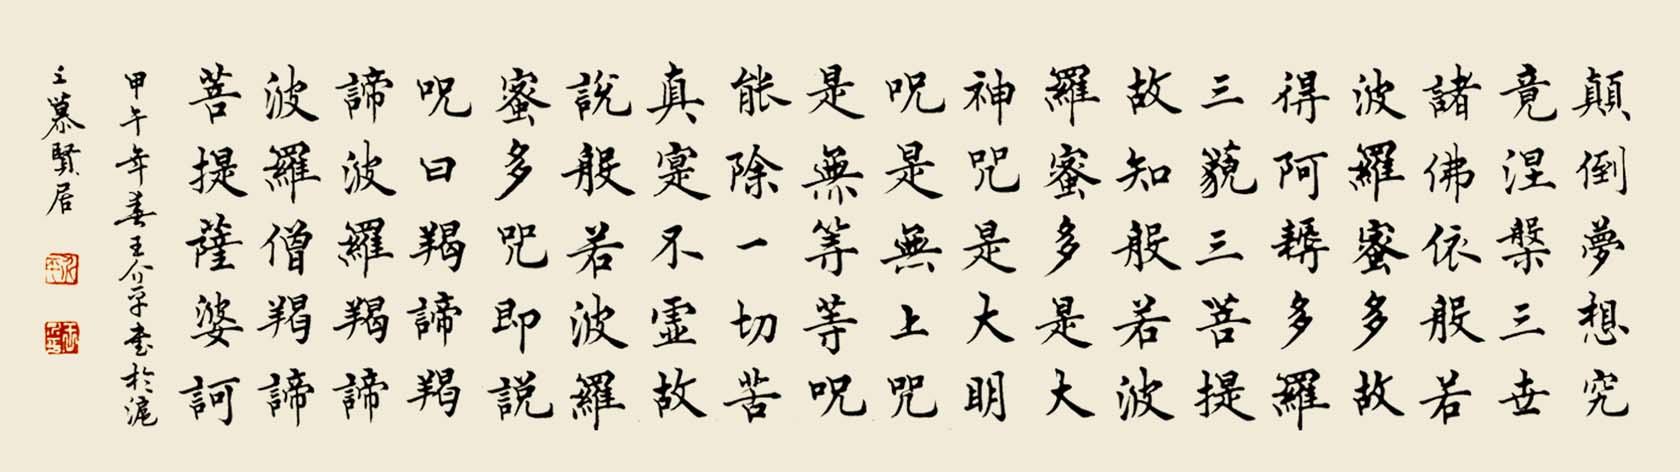 顛倒夢想究
竟涅槃三世
諸佛依般若
波羅蜜多故
得阿耨多羅
三藐三菩提
故知般若波
羅蜜多是大
神咒是大明
咒是無上咒
是無等等呪
能除一切苦
真寔不虛故
說般若波羅
蜜多咒即説
呪曰羯諦羯
諦波羅羯諦
波羅僧羯諦
菩提薩婆訶
甲午年春王介平書於滬
上慕賢居